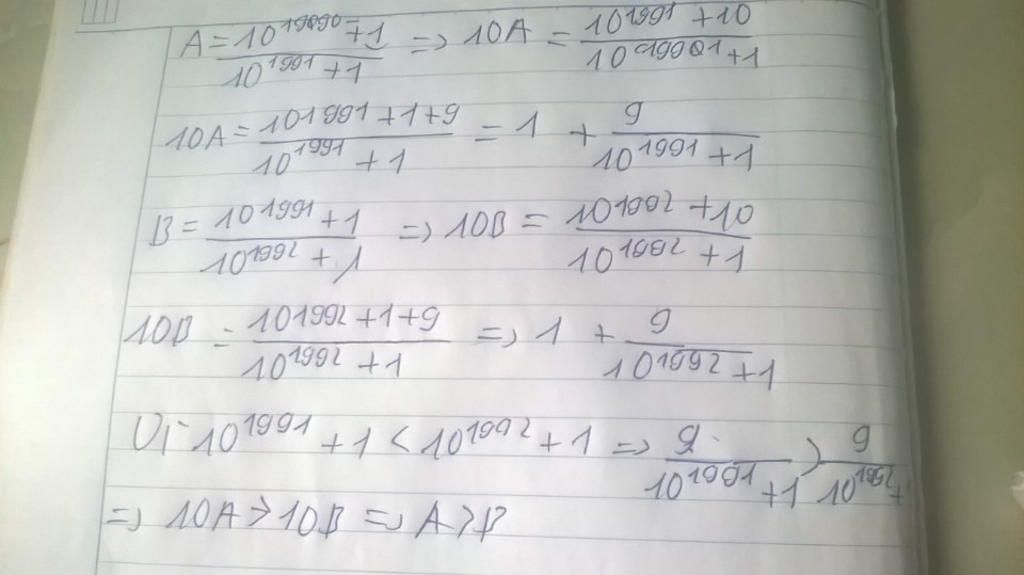 A = (10^1990 + 1)/(10^1991 + 1) => 10A = (10^1991 + 10)/(10^1991 + 1)
10A = (10^1991 + 1 + 9)/(10^1991 + 1) = 1 + 9/(10^1991 + 1)
B = (10^1991 + 1)/(10^1992 + 1) => 10B = (10^1992 + 10)/(10^1992 + 1)
10B = (10^1992 + 1 + 9)/(10^1992 + 1) => 1 + 9/(10^1992 + 1)
Vì 10^1991 + 1 < 10^1992 + 1 => 9/(10^1991 + 1) > 9/(10^1992 +
=> 10A > 10B => A > B